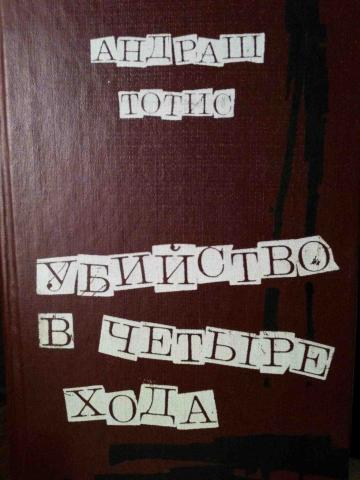 АНДРАШ
ТОТИС
УБИЙСТВО
В ЧЕТЫРЕ
ХОДА